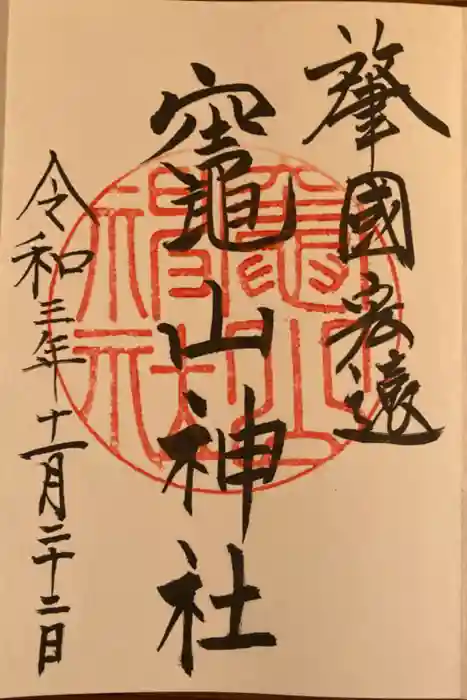 肇國宏遠
竈山神社
令和三年十一月二十二日